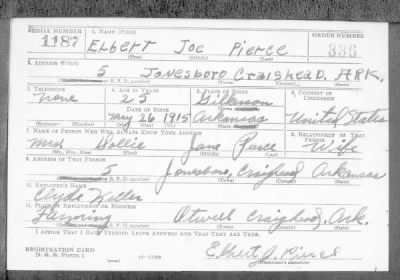 SERIAL NUMBER 1. NAME (Print) ORDER NUMBER
1187 ELbert Joe Pierce 336
(First) (Middle) (Last)
2. ADDRESS (Print)
5 Jonesboro Craighead. ARK.
3. TELEPHONE 4. AGE IN YEARS 5. PLACE OF BIRTH 6. COUNTRY OF CITIZENSHIP
None 25
DATE OF BIRTH
May 26 1915 Arkansas United States
7. NAME OF PERSON WHO WILL ALWAYS KNOW YOUR ADDRESS 8. RELATIONSHIP OF THAT PERSON
Mrs Dollie Jane Wife
(Mr., Mrs., Miss) (First) (Middle) (Last)
9. ADDRESS OF THAT PERSON
5 Jonesboro, Craighead Arkansas
10. EMPLOYER'S NAME
Clyde
11. PLACE OF EMPLOYMENT OR BUSINESS
Farming Otwell Craighead, Ark.
I AFFIRM THAT I HAVE VERIFIED ABOVE ANSWERS AND THAT THEY ARE TRUE.
REGISTRATION CARD
D. S. S. Form 1
Elbert J. Pierce
(Registrant's signature)